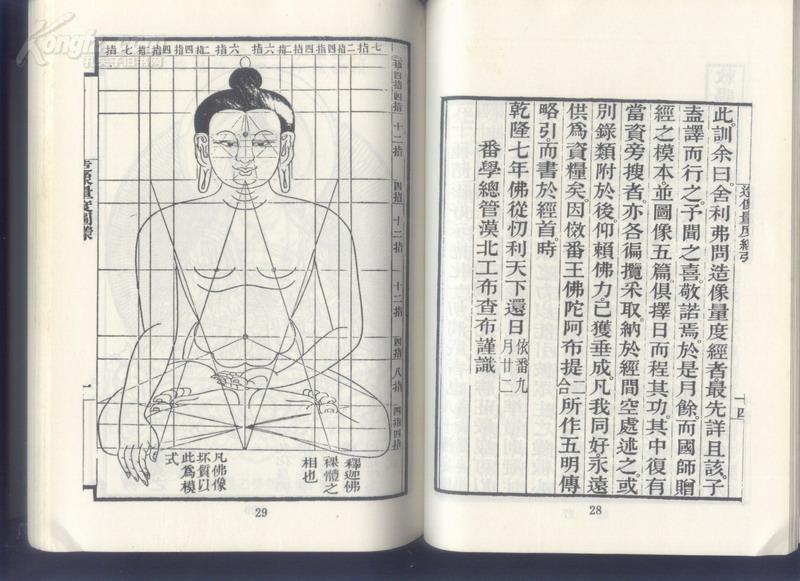 造像量度經引
十四
此訓余曰。舍利弗問造像量度經者最先詳且該。子
盍譯而行之。予聞之喜。敬諾焉。於是月餘。而國師贈
經之模本並圖像五篇俱擇日而程其功。其中復有
當資旁搜者。亦各徧攬采取。納於經間空處述之。或
別錄類附於後仰賴佛力。已獲垂成。凡我同好。永遠
供為資糧矣。因倣番王佛陀阿布提二合所作五明傳
略引而書於經首。時
乾隆七年佛從忉利天下還日依番九月廿二
番學總管漠北工布查布謹識
28
七指 四指 四指 二指 六指 六指 二指 四指 四指 七指
四指
四指
十二指
四指
十二指
十二指
四指
八指
四指
四指
釋迦佛
裸體之
相也
凡佛像
坯質以
此為模
式
一
29
Kongfz.com
孔夫子旧书网